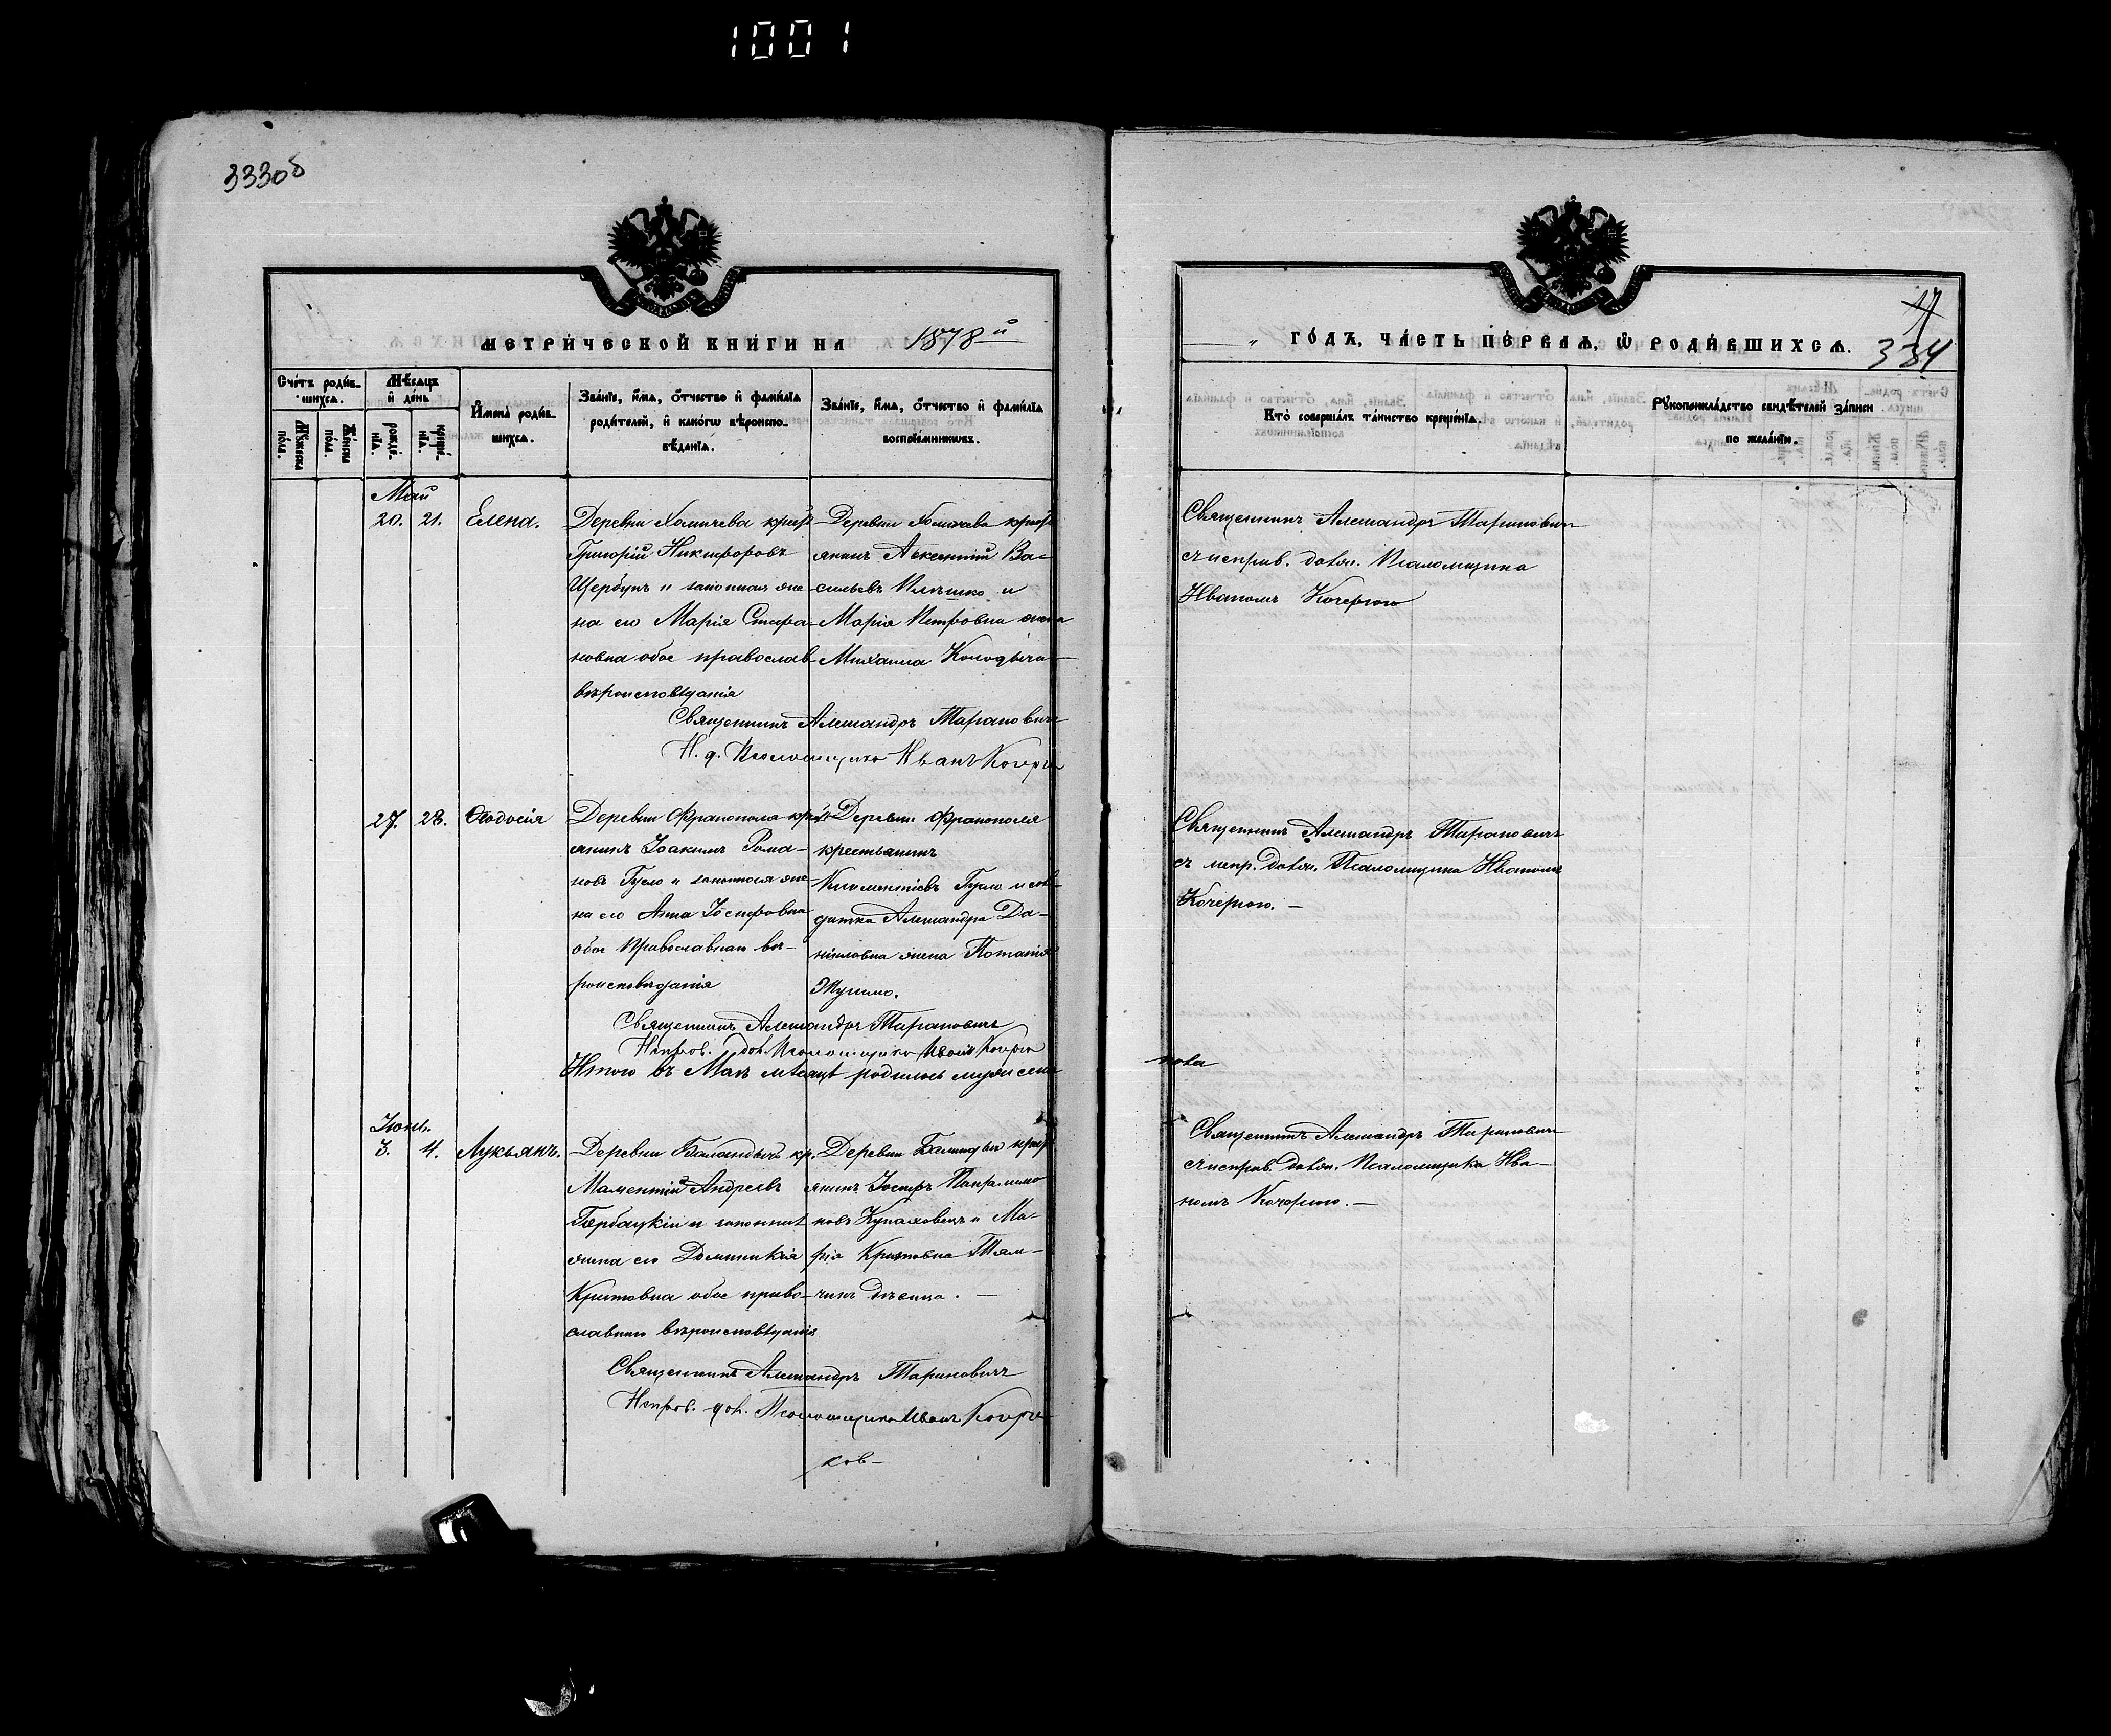 1001
333об
МЕТРИЧЕСКОЙ КНИГИ НА 1878й
Счетъ родившихся.
Мѣсяцъ и день
Имена родившихся.
Званіе, имя, отчество и фамилія родителей, и какого вѣроисповѣданія.
Званіе, имя, отчество и фамилія воспріемниковъ.
Мужеска пола.
Женска пола.
рожденія.
крещенія.
Май
20. 21. Елена.
Деревни
Григорій Никифоровъ
Щербунъ и законная же-
на его Марія Стефа-
новна обое православ
вѣроисповѣданія
Деревни
янинъ Авксентій Ва-
сильевъ и
Марія Петровна жена
Михаила
Священникъ Александръ Тарановичъ
И. д. Псаломщика Иванъ
27. 28. Ѳеодосія
Деревни Франополя
янинъ Іоакимъ Рома-
новъ Гусло и законная же-
на его Анна Іосифовна
обое Православнаго вѣ-
роисповѣданія
Деревни Франополя
крестьянинъ
Климентіевъ Гусло и сол-
датка Александра Да-
ниловна жена Потапія
Священникъ Александръ Тарановичъ
Псаломщика Иванъ
Итого въ Маѣ мѣсяцѣ родилось
Іюнь.
3. 4. Лукьянъ.
Деревни кр.
Маментій Андреевъ
и законная
жена его Доминикія
Критовна обое право-
славнаго вѣроисповѣданія
Деревни
янинъ Іосифъ
новъ и Ма-
рія Критовна
дѣвица. —
Священникъ Александръ Тарановичъ
Псаломщика Иванъ
ГОДЪ, ЧАСТЬ ПЕРВАЯ, Ѿ РОДИВШИХСЯ.
334
Кто совершалъ таинство крещенія.
Рукоприкладство свидѣтелей записи по желанію.
Священникъ Александръ Тарановичъ
съ исправ. долж. Псаломщика
Иваномъ Кочергою
Священникъ Александръ Тарановичъ
съ испр. долж. Псаломщика Иваномъ
Кочергою. —
Священникъ Александръ Тарановичъ
съ исправ. долж. Псаломщика Ива-
номъ Кочергою. —